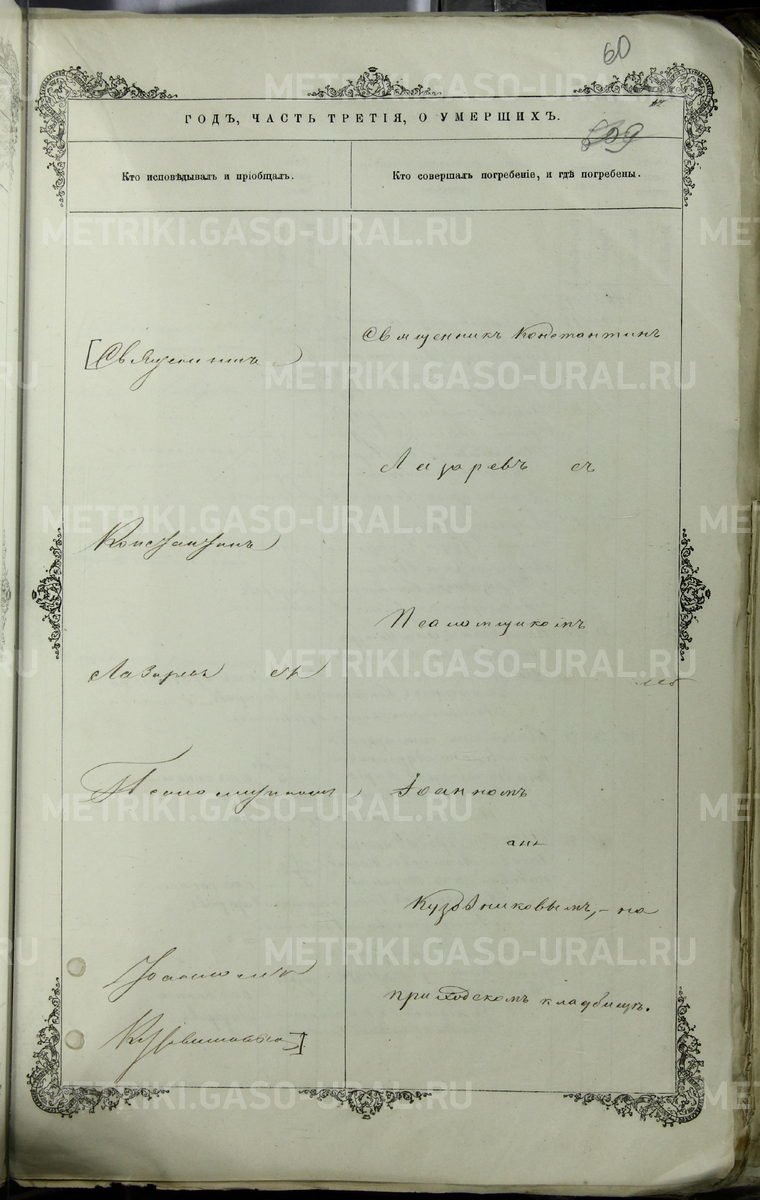 60
ГОДЪ, ЧАСТЬ ТРЕТІЯ, О УМЕРШИХЪ.
Кто исповѣдывалъ и пріобщалъ.
Кто совершалъ погребеніе, и гдѣ погребены.
[Священникъ
Константинъ
Лазаревъ съ
Псаломщикомъ
Іоанномъ
]
Священникъ Константинъ
Лазаревъ съ
Псаломщикомъ
Іоанномъ
на
приходскомъ кладбищѣ.
METRIKI.GASO-URAL.RU